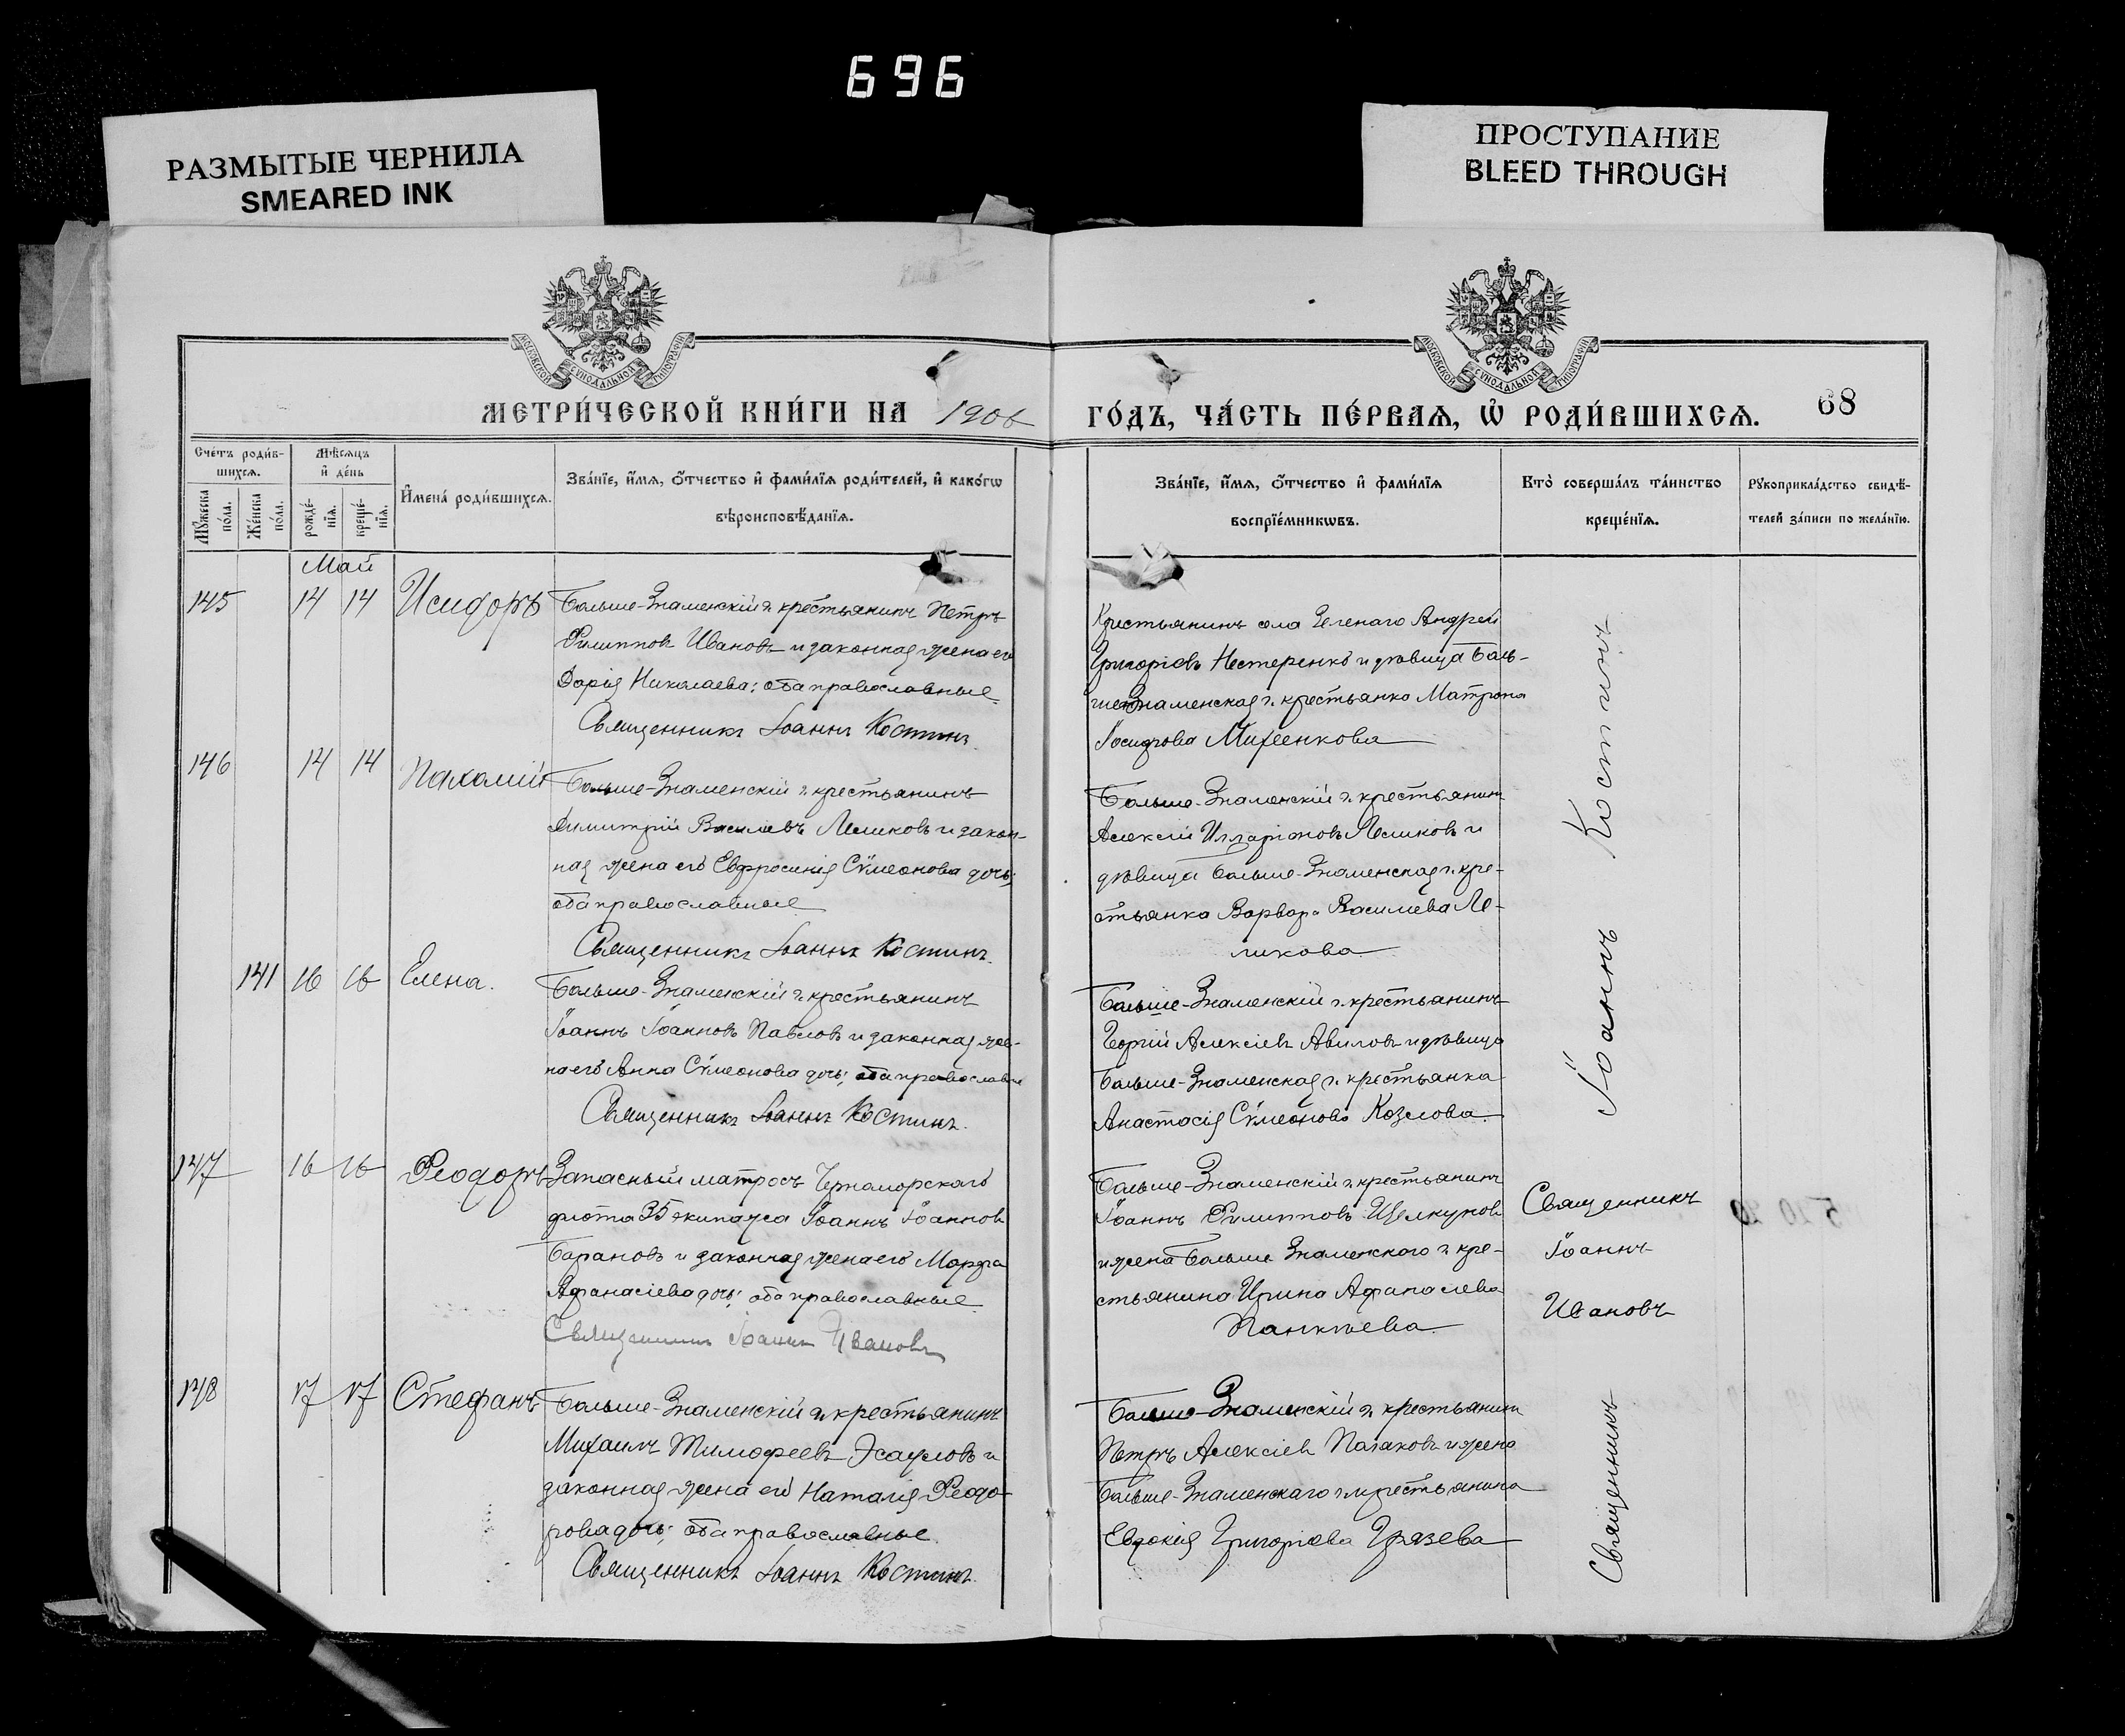 696
РАЗМЫТЫЕ ЧЕРНИЛА
SMEARED INK
ПРОСТУПАНИЕ
BLEED THROUGH
МОСКОВСКОЙ СѴНОДАЛЬНОЙ ТИПОГРАФІИ
МОСКОВСКОЙ СѴНОДАЛЬНОЙ ТИПОГРАФІИ
МЕТРИ́ЧЕСКОЙ КНИ́ГИ НА 1906
ГО́ДЪ, ЧА́СТЬ ПЕ́РВАѦ, Ѡ҆ РОДИ́ВШИХСѦ.
68
Сче́тъ роди́в-
шихсѧ.
Мѣ́сѧцъ
и҆ де́нь
И҆мена̀ роди́вшихсѧ.
Зва́нїе, и҆́мѧ, ѻ҆́тчество и҆ фамѝлїѧ роди́телей, и҆ како́гѡ
вѣроисповѣ́данїѧ.
Мꙋ́жеска
по́ла.
Же́нска
по́ла.
рожде́-
нїѧ.
креще́-
нїѧ.
Зва́нїе, и҆́мѧ, ѻ҆́тчество и҆ фамѝлїѧ
воспрїе́мникѡвъ.
Кто̀ соверша́лъ та́инство
креще́нїѧ.
Рꙋкоприкла́дство свидѣ́-
телей за́писи по жела́нїю.
Май
145 14 14 Исидоръ
Больше-Знаменскій крестьянинъ Петръ
Филипповъ Ивановъ и законная жена его
Дарія Николаева; оба православные
Священникъ Іоаннъ Костинъ
Крестьянинъ села Зеленаго Андрей
Григоріевъ Нестеренко и дѣвица Боль-
ше-Знаменская крестьянка Матрона
Михеенкова
146 14 14 Пахомій
Больше-Знаменскій крестьянинъ
Димитрій Василіевъ Леликовъ и закон-
ная жена его Евфросинія Сѵмеонова дочь;
оба православные
Священникъ Іоаннъ Костинъ
Больше-Знаменскій крестьянинъ
Алексій Илларіоновъ Леликовъ и
дѣвица Больше-Знаменская кре-
стьянка Варвара Василіева Ле-
ликова
141 16 16 Елена.
Больше-Знаменскій крестьянинъ
Іоаннъ Іоанновъ Павловъ и законная же-
на его Анна Сѵмеонова дочь; оба православные
Священникъ Іоаннъ Костинъ.
Больше-Знаменскій крестьянинъ
Георгій Алексіевъ Авиловъ и дѣвица
Больше-Знаменская крестьянка
Анастасія Сѵмеонова Козлова
147 16 16 Феодоръ
Запасный матросъ Черноморскаго
флота 35 экипажа Іоаннъ Іоанновъ
Барановъ и законная жена его Марфа
Афанасіева дочь; оба православные
Священникъ Іоаннъ Ивановъ
Больше-Знаменскій крестьянинъ
Іоаннъ Филипповъ Щелкуновъ
и жена Больше Знаменского кре-
стьянина Ирина Афанасіева
Панкѣева.
Священникъ
Іоаннъ
Ивановъ
148 17 17 Стефанъ
Больше-Знаменскій крестьянинъ
Михаилъ Тимофеевъ Эсауловъ и
законная жена его Наталія Феодо-
рова дочь; оба православные.
Священникъ Іоаннъ Костинъ.
Больше-Знаменскій крестьянинъ
Петръ Алексіевъ и жена
Больше-Знаменскаго крестьянина
Евдокія Григоріева Грязева
Священникъ Іоаннъ Костинъ